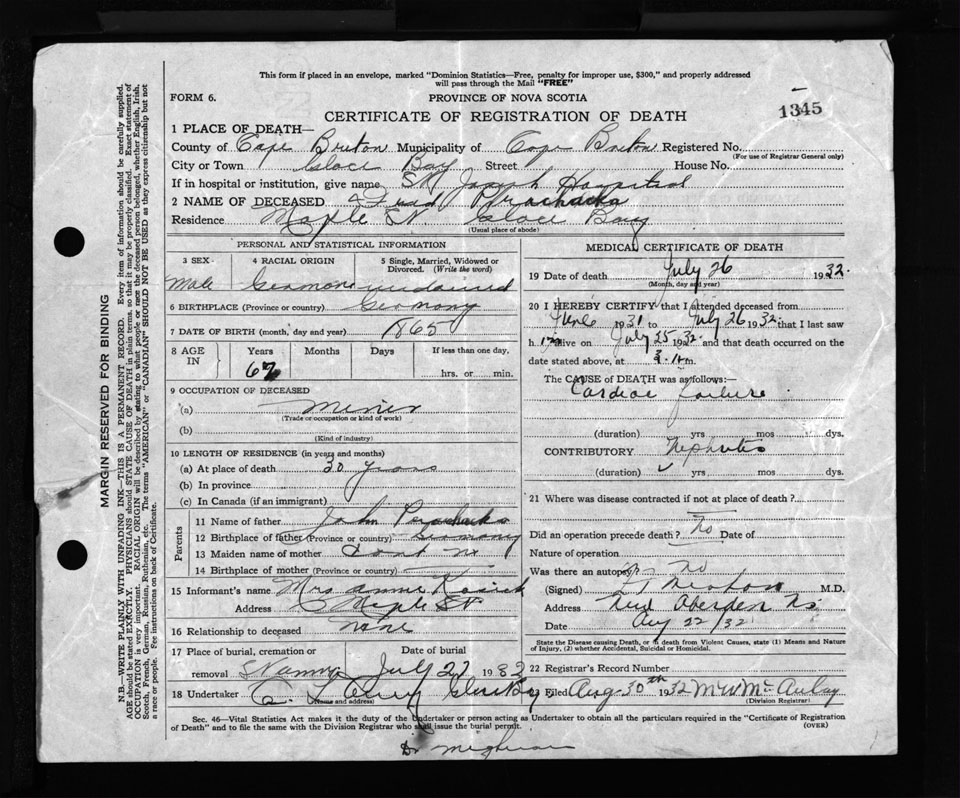 This form if placed in an envelope, marked "Dominion Statistics—Free, penalty for improper use, $300," and properly addressed
will pass through the Mail "FREE"
FORM 6.
PROVINCE OF NOVA SCOTIA
CERTIFICATE OF REGISTRATION OF DEATH
1345
1 PLACE OF DEATH—
County of Cape Breton Municipality of Cape Breton Registered No.
(For use of Registrar General only)
City or Town Glace Bay Street House No.
If in hospital or institution, give name St Joseph Hospital
2 NAME OF DECEASED
Residence Maple St Glace Bay
(Usual place of abode)
PERSONAL AND STATISTICAL INFORMATION
3 SEX
Male
4 RACIAL ORIGIN
German
5 Single, Married, Widowed or Divorced. (Write the word)
6 BIRTHPLACE (Province or country) Germany
7 DATE OF BIRTH (month, day and year) 1865
8 AGE IN
Years Months Days If less than one day.
67 hrs. or min.
9 OCCUPATION OF DECEASED
(a) Miner
(Trade or occupation or kind of work)
(b)
(Kind of industry)
10 LENGTH OF RESIDENCE (in years and months)
(a) At place of death 30 years
(b) In province
(c) In Canada (if an immigrant)
Parents
11 Name of father John
12 Birthplace of father (Province or country) Germany
13 Maiden name of mother
14 Birthplace of mother (Province or country)
15 Informant's name Mrs Annie
Address Maple St
16 Relationship to deceased None
17 Place of burial, cremation or removal Date of burial
July 27 1932
18 Undertaker
(Name and address)
MEDICAL CERTIFICATE OF DEATH
19 Date of death July 26 1932.
(Month, day and year)
20 I HEREBY CERTIFY that I attended deceased from
June 1931 to July 26 1932 that I last saw
him alive on July 25 1932 and that death occurred on the
date stated above, at 3. m.
The CAUSE of DEATH was as follows:—
Cardiac failure
(duration) yrs mos dys.
CONTRIBUTORY Nephritis
(duration) yrs mos dys.
21 Where was disease contracted if not at place of death?
Did an operation precede death? No Date of
Nature of operation
Was there an autopsy? No
(Signed) M.D.
Address New Aberdeen NS.
Date Aug 22/32
State the Disease causing Death, or in death from Violent Causes, state (1) Means and Nature
of Injury, (2) whether Accidental, Suicidal or Homicidal.
22 Registrar's Record Number
Filed Aug 30th 1932 M W McAulay
(Division Registrar)
Sec. 46—Vital Statistics Act makes it the duty of the Undertaker or person acting as Undertaker to obtain all the particulars required in the "Certificate of Registration
of Death" and to file the same with the Division Registrar who shall issue the burial permit.
(OVER)
Dr
MARGIN RESERVED FOR BINDING
N.B.—WRITE PLAINLY WITH UNFADING INK—THIS IS A PERMANENT RECORD. Every item of information should be carefully supplied.
AGE should be stated EXACTLY. PHYSICIANS should STATE CAUSE OF DEATH in plain terms, so that it may be properly classified. Exact statement of
OCCUPATION is very important. RACIAL ORIGIN will be described by stating to what people or race the deceased person belonged, whether English, Irish,
Scotch, French, German, Russian, Ruthenian, etc. The terms "AMERICAN" or "CANADIAN" SHOULD NOT BE USED as they express citizenship but not
a race or people. Fee instructions on back of Certificate.